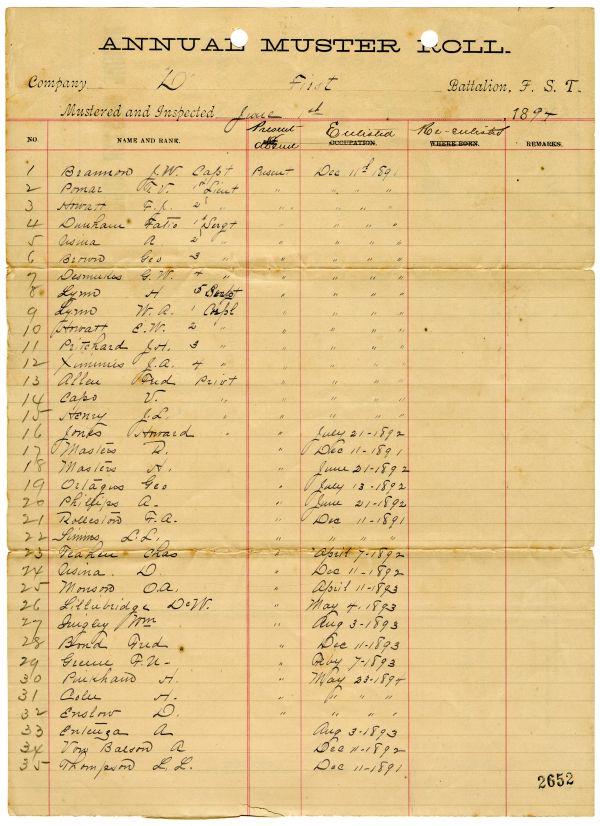 ANNUAL MUSTER ROLL.
Company D First Battalion, F. S. T.
Mustered and Inspected June 1st, 1894
Present Enlisted Re-enlisted
NO. NAME AND RANK. OCCUPATION. WHERE BORN. REMARKS.
1 Brannon J.W. Capt Present Dec 11th 1891
2 Pomar F.V. 1st Lieut " " " "
3 Howatt F.J. 2 " " " " "
4 Dunham Fatio 1st Sergt " " " "
5 Usina A 2 " " " " "
6 Brown Geo 3 " " " " "
7 Desmuies G.W. 4 " " " " "
8 Lynn H 5 Sergt " " " "
9 Lynn W. A. 1 Copl " " " "
10 Howatt E.W. 2 " " " " "
11 Pritchard J.H. 3 " " " " "
12 Ximinies J.A. 4 " " " " "
13 Allen Fred Privt " " " "
14 Capo V. " " " " "
15 Henry J.L. " " " " "
16 Jones Howard " " July 21-1892
17 Masters D. " Dec 11-1891
18 Masters H. " June 21-1892
19 Ortagus Geo " July 13-1892
20 Phillips A. " June 21-1892
21 Rolleston F.A. " Dec 11-1891
22 Simms L.L. " " " "
23 Chas " April 7-1892
24 Usina D. " Dec 11-1892
25 Monson O.A. " April 11-1893
26 Lillibridge DeW. " May 4, 1893
27 Quigley Wm " Aug 3-1893
28 Bond Fred " Dec 11-1893
29 Greene F. " 7-1893
30 H. " May 23-1894
31 H. " " " "
32 Enslow D. " " " "
33 A Aug 3-1893
34 Von Balson A Dec 11-1892
35 Thompson L.L. Dec 11-1891
2652